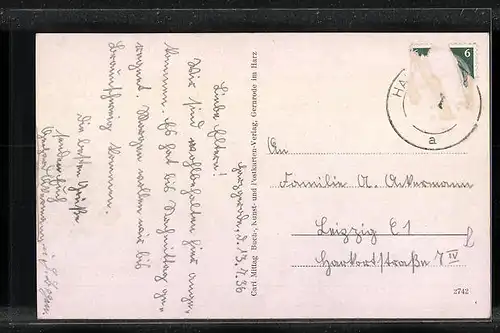 Harzgerode, d. 13.7.36
Liebe Eltern!
Wir sind wohlbehalten hier ange-
kommen. Es hat bis Nachmittag ge-
regnet. Morgen wollen wir bis
Braunschweig kommen.
Die besten Grüße
senden Euch
Carl Mittag Buch-, Kunst- und Postkarten-Verlag, Gernrode im Harz
6
HA
a
An
Familie A. Ackermann
Leipzig C1
Harkortstraße 7 IV
2742